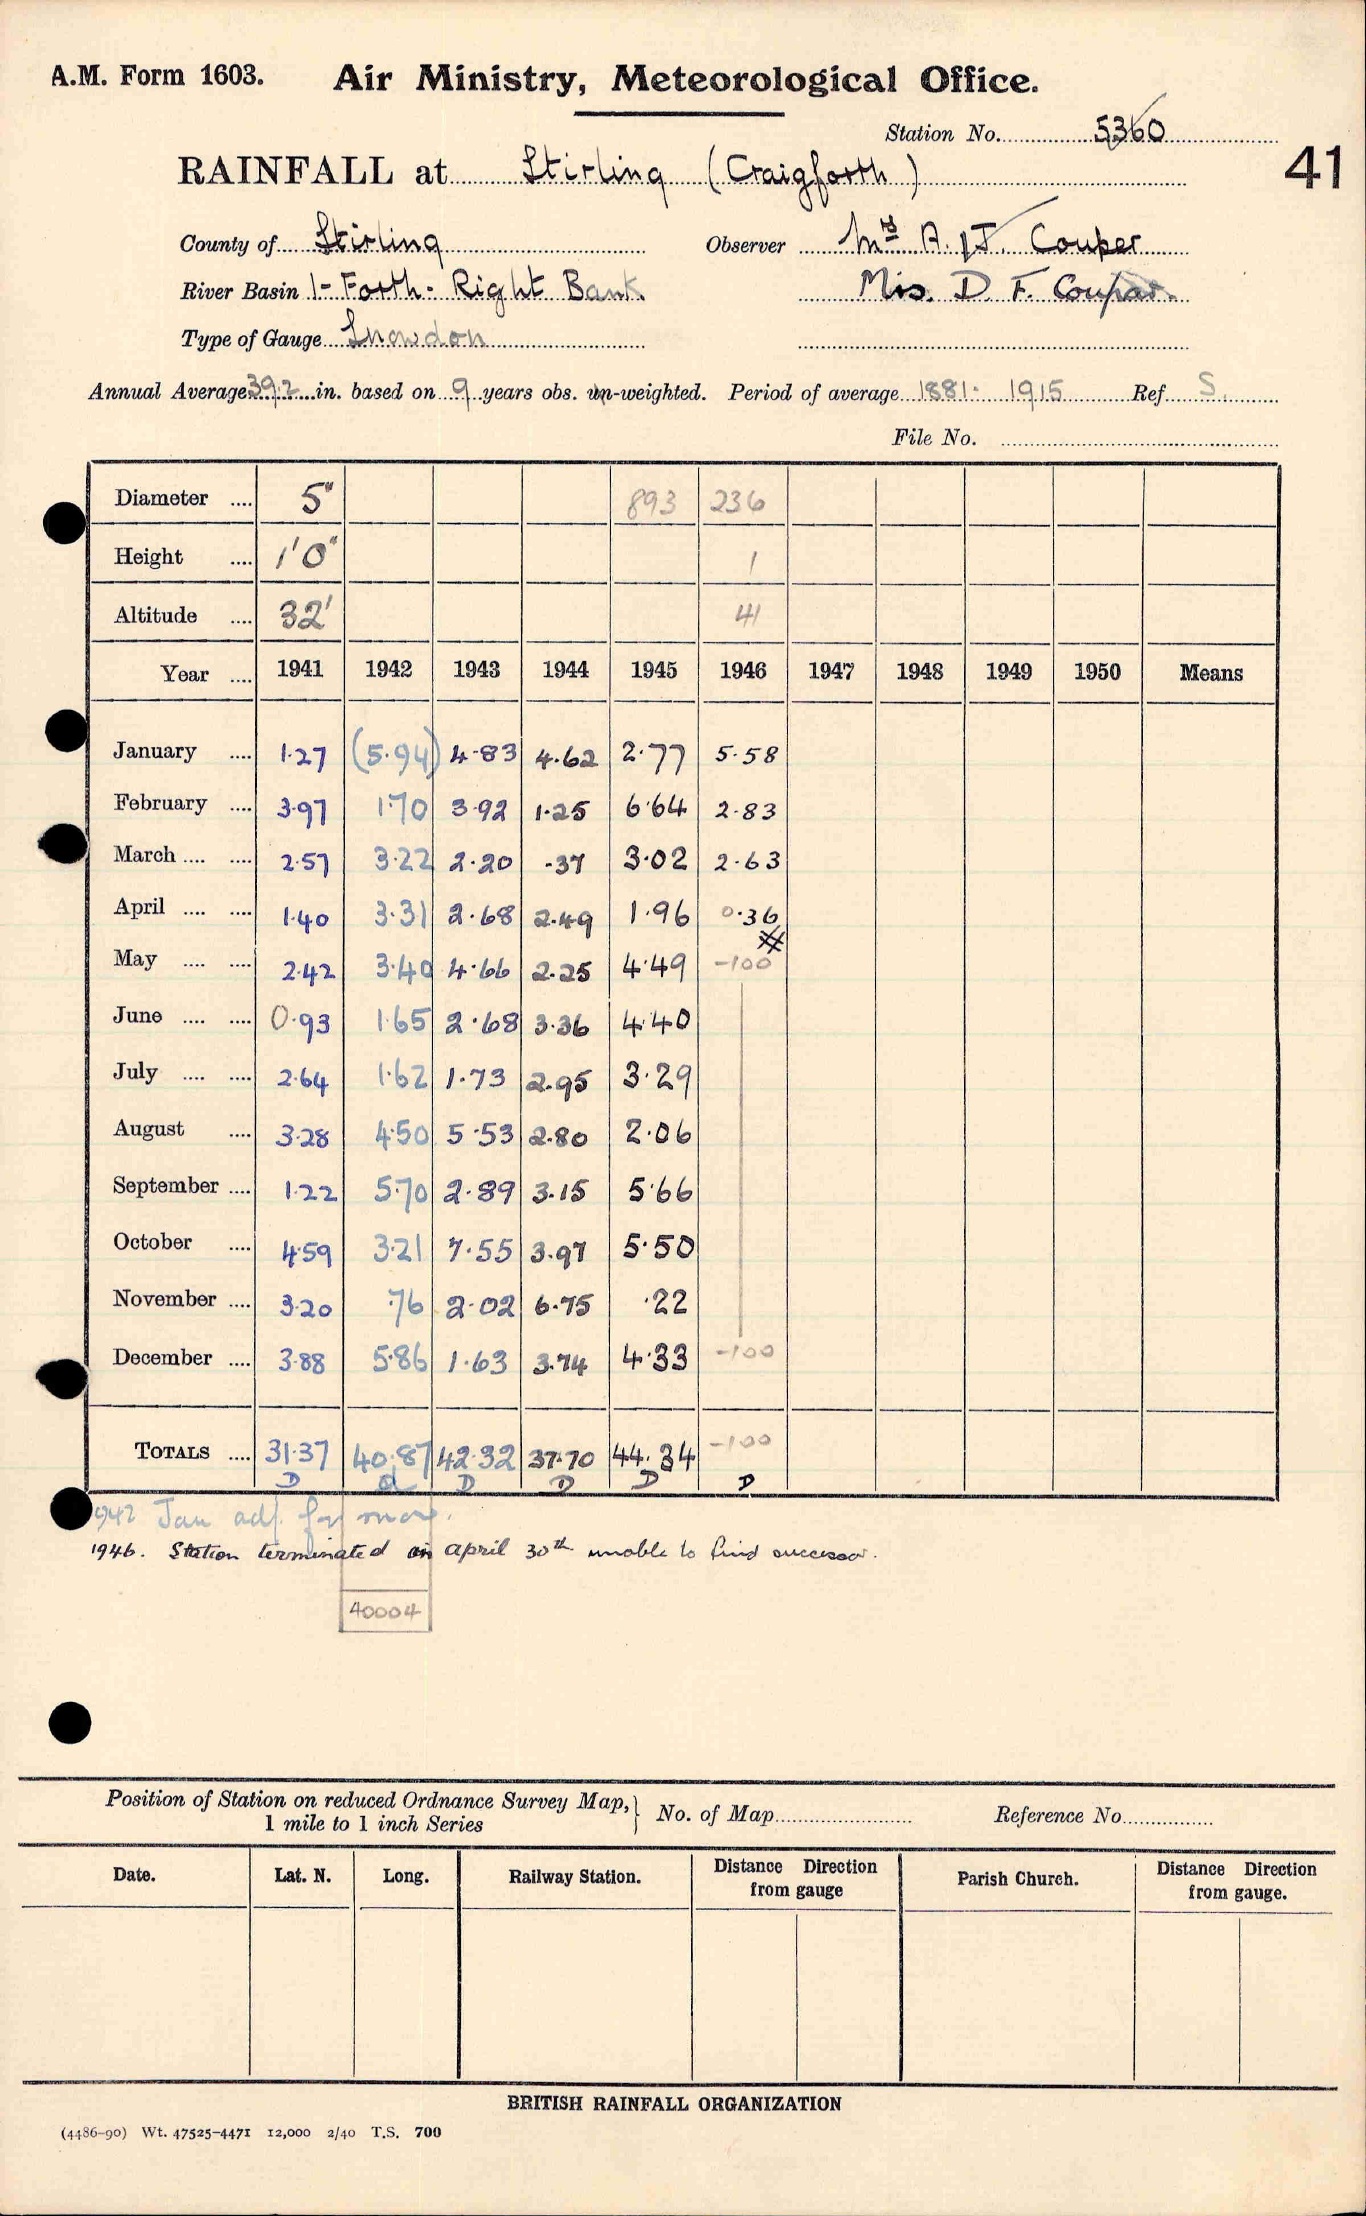 A.M. Form 1603. Air Ministry, Meteorological Office.
Station No. 5360
41
RAINFALL at Stirling (Craigforth)
County of Stirling Observer Mrs A. J. Couper
River Basin 1- Forth - Right Bank Miss. D. F. Coupar.
Type of Gauge Snowdon
Annual Average 39.2 in. based on 9 years obs. un-weighted. Period of average 1881 - 1915 Ref S.
File No.
Diameter .... 5" 893 236
Height .... 1'0" 1
Altitude .... 32' 41
Year .... 1941 1942 1943 1944 1945 1946 1947 1948 1949 1950 Means
January .... 1.27 (5.94) 4.83 4.62 2.77 5.58
February .... 3.97 1.70 3.92 1.25 6.64 2.83
March .... .... 2.57 3.22 2.20 .37 3.02 2.63
April .... .... 1.40 3.31 2.68 2.49 1.96 0.36
May .... .... 2.42 3.40 4.66 2.25 4.49 -100
June .... .... 0.93 1.65 2.68 3.36 4.40
July .... .... 2.64 1.62 1.73 2.95 3.29
August .... 3.28 4.50 5.53 2.80 2.06
September .... 1.22 5.70 2.89 3.15 5.66
October .... 4.59 3.21 7.55 3.97 5.50
November .... 3.20 .76 2.02 6.75 .22
December .... 3.88 5.86 1.63 3.74 4.33 -100
TOTALS .... 31.37 40.87 42.32 37.70 44.34 -100
D d D D D D
1942 Jan adj. for snow.
1946. Station terminated on april 30th unable to find successor.
40004
Position of Station on reduced Ordnance Survey Map, } No. of Map Reference No.
1 mile to 1 inch Series
Date. Lat. N. Long. Railway Station. Distance Direction from gauge Parish Church. Distance Direction from gauge.
BRITISH RAINFALL ORGANIZATION
(4486-90) Wt. 47525-4471 12,000 2/40 T.S. 700